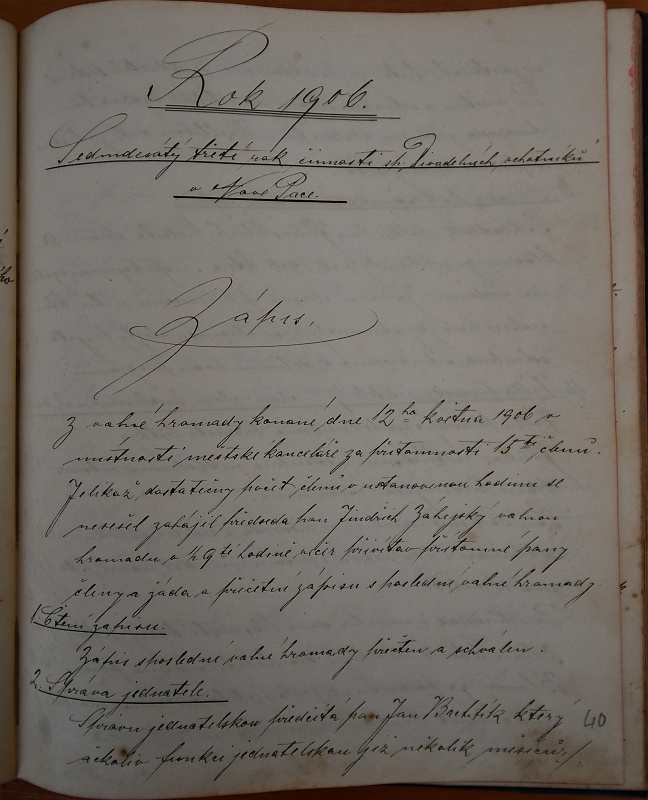 Rok 1906.
Sedmdesátý třetí rok činnosti sp. Divadelních ochotníků
v Nové Pace.
Zápis.
z valné hromady konané dne 12ho května 1906 v
místnosti městské kanceláře za přítomnosti 15ti členů.
Jelikož dostatečný počet členů v ustanovenou hodinu se
nesešel zahájil předseda pan Jindřich Záhejský valnou
hromadu o ½ 9té hodině večer přivítav přítomné pány
členy a žádá o přečtení zápisu s poslední valné hromady.
1. Čtení zápisu.
Zápis s poslední valné hromady přečten a schválen.
2. Správa jednatele.
Správu jednatelskou předčítá pan Jan který
ačkoliv funkci jednatelskou již několik měsíců
40